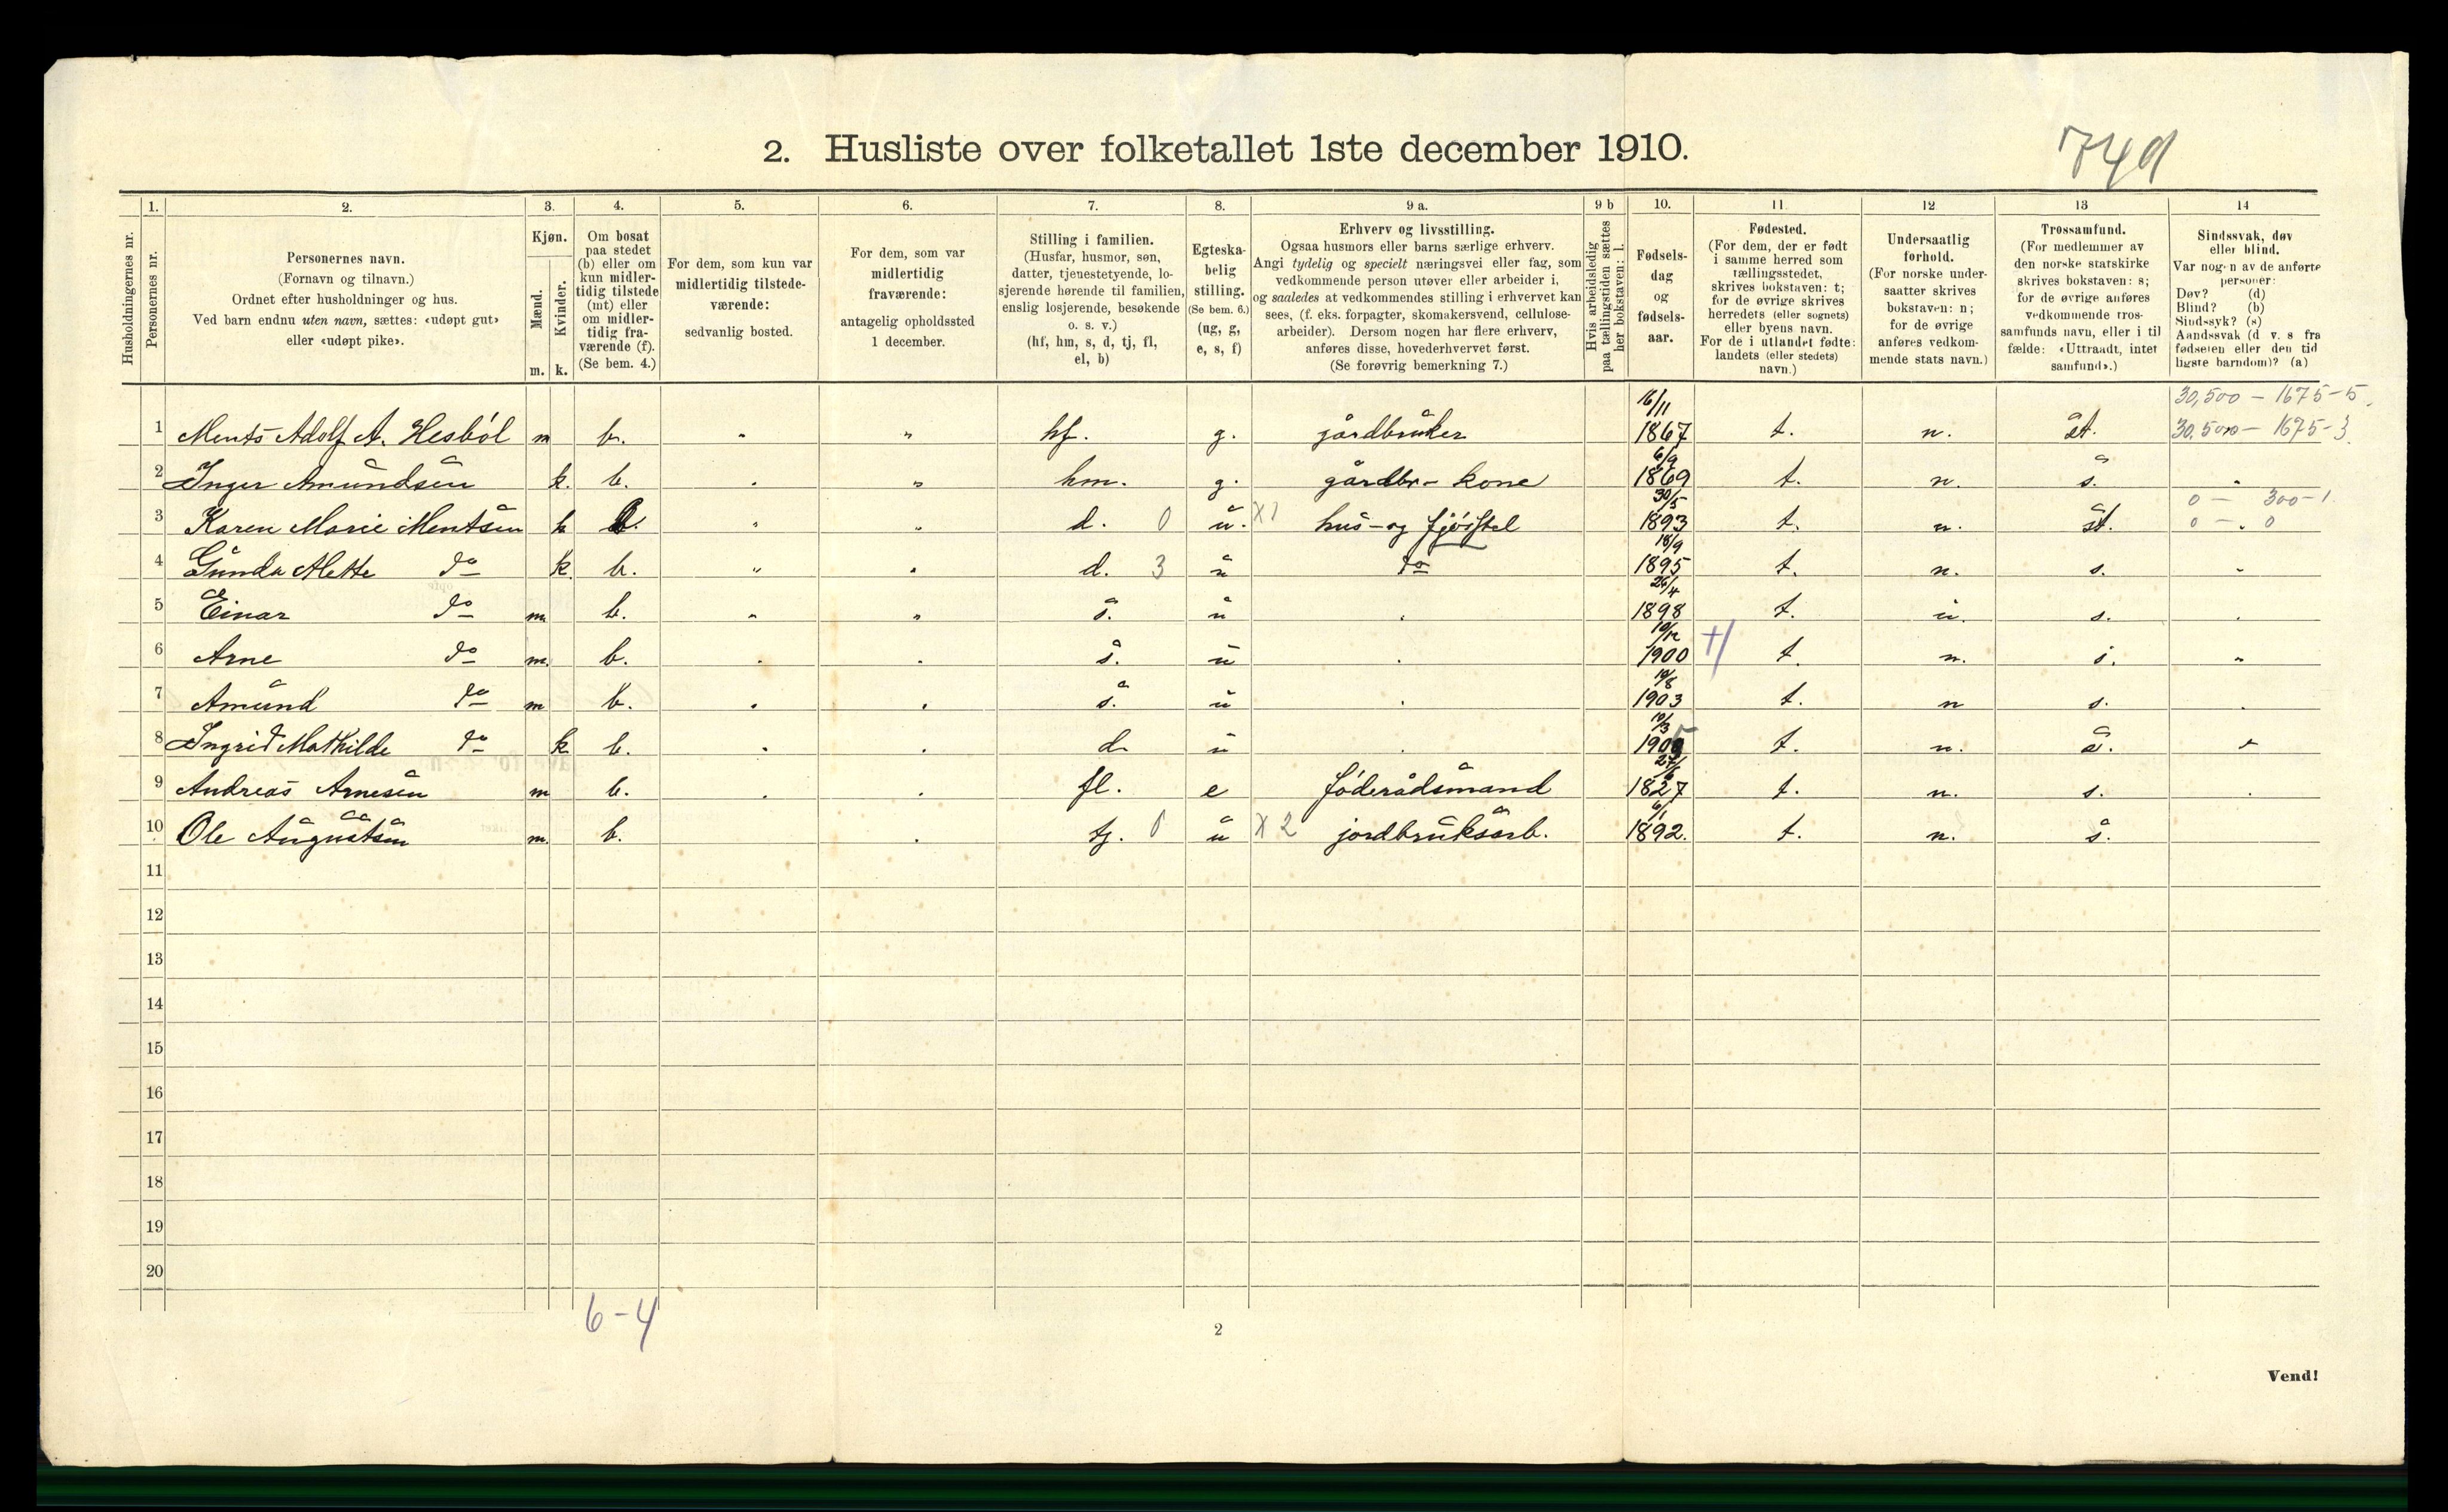 2. Husliste over folketallet 1ste december 1910.
749
1. 2. 3. 4. 5. 6. 7. 8. 9 a. 9 b 10. 11. 12. 13 14
Husholdningernes nr.
Personernes nr.
Personernes navn.
(Fornavn og tilnavn.)
Ordnet efter husholdninger og hus.
Ved barn endnu uten navn, sættes: «udøpt gut»
eller «udøpt pike».
Kjøn.
Mænd.
Kvinder.
m. k.
Om bosat
paa stedet
(b) eller om
kun midler-
tidig tilstede
(mt) eller
om midler-
tidig fra-
værende (f).
(Se bem. 4.)
For dem, som kun var
midlertidig tilstede-
værende:
sedvanlig bosted.
For dem, som var
midlertidig
fraværende:
antagelig opholdssted
1 december.
Stilling i familien.
(Husfar, husmor, søn,
datter, tjenestetyende, lo-
sjerende hørende til familien,
enslig losjerende, besøkende
o. s. v.)
(hf, hm, s, d, tj, fl,
el, b)
Egteska-
belig
stilling.
(Se bem. 6.)
(ug, g,
e, s, f)
Erhverv og livsstilling.
Ogsaa husmors eller barns særlige erhverv.
Angi tydelig og specielt næringsvei eller fag, som
vedkommende person utøver eller arbeider i,
og saaledes at vedkommendes stilling i erhvervet kan
sees, (f. eks. forpagter, skomakersvend, cellulose-
arbeider). Dersom nogen har flere erhverv,
anføres disse, hovederhvervet først.
(Se forøvrig bemerkning 7.)
Hvis arbeidsledig
paa tællingstiden sættes
her bokstaven: l.
Fødsels-
dag
og
fødsels-
aar.
Fødested.
(For dem, der er født
i samme herred som
tællingsstedet,
skrives bokstaven: t;
for de øvrige skrives
herredets (eller sognets)
eller byens navn.
For de i utlandet fødte:
landets (eller stedets)
navn.)
Undersaatlig
forhold.
(For norske under-
saatter skrives
bokstaven: n;
for de øvrige
anføres vedkom-
mende stats navn.)
Trossamfund.
(For medlemmer av
den norske statskirke
skrives bokstaven: s;
for de øvrige anføres
vedkommende tros-
samfunds navn, eller i til
fælde: «Uttraadt, intet
samfund».)
Sindssvak, døv
eller blind.
Var nogen av de anførte
personer:
Døv? (d)
Blind? (b)
Sindssyk? (s)
Aandssvak (d v. s fra
fødselen eller den tid
ligste barndom)? (a)
30,500 - 1675-5
1 Ments Adolf A. Hesbøl m b. " " hf. g. gårdbruker 16/11 1867 t. n. st. 30.500 - 1675-3
2 Inger Amundsen k. b. " " hm. g. gårdbr- kone 6/9 1869 t. n. s. "
0 - 300-1
3 Karen Marie Mentsen k b. " " d. 0 u. X1 hus- og fjøsstel 30/5 1893 t. n. st. 0 - . 0
4 Gunda Alette do k. b. " " d. 3 u do 18/9 1895 t. n. s. "
5 Einar do m. b. " " s. u . 26/4 1898 t. n. s. .
6 Arne do m. b. . . s. u . 19/12 1900 t. n. s. "
7 Amund do m b. . . s. u . 19/8 1903 t. n s. .
8 Ingrid Mathilde do k b. . . d. u . 10/3 1905 t. n. s. "
9 Andreas Arnesen m b. . . fl. e føderådsmand 27/6 1827 t. n. s. .
10 Ole Augustsen m. b. . tj. 0 u X2 jordbruksarb. 6/1 1892. t. n. s.
11
12
13
14
15
16
17
18
19
20
6-4
2
Vend!